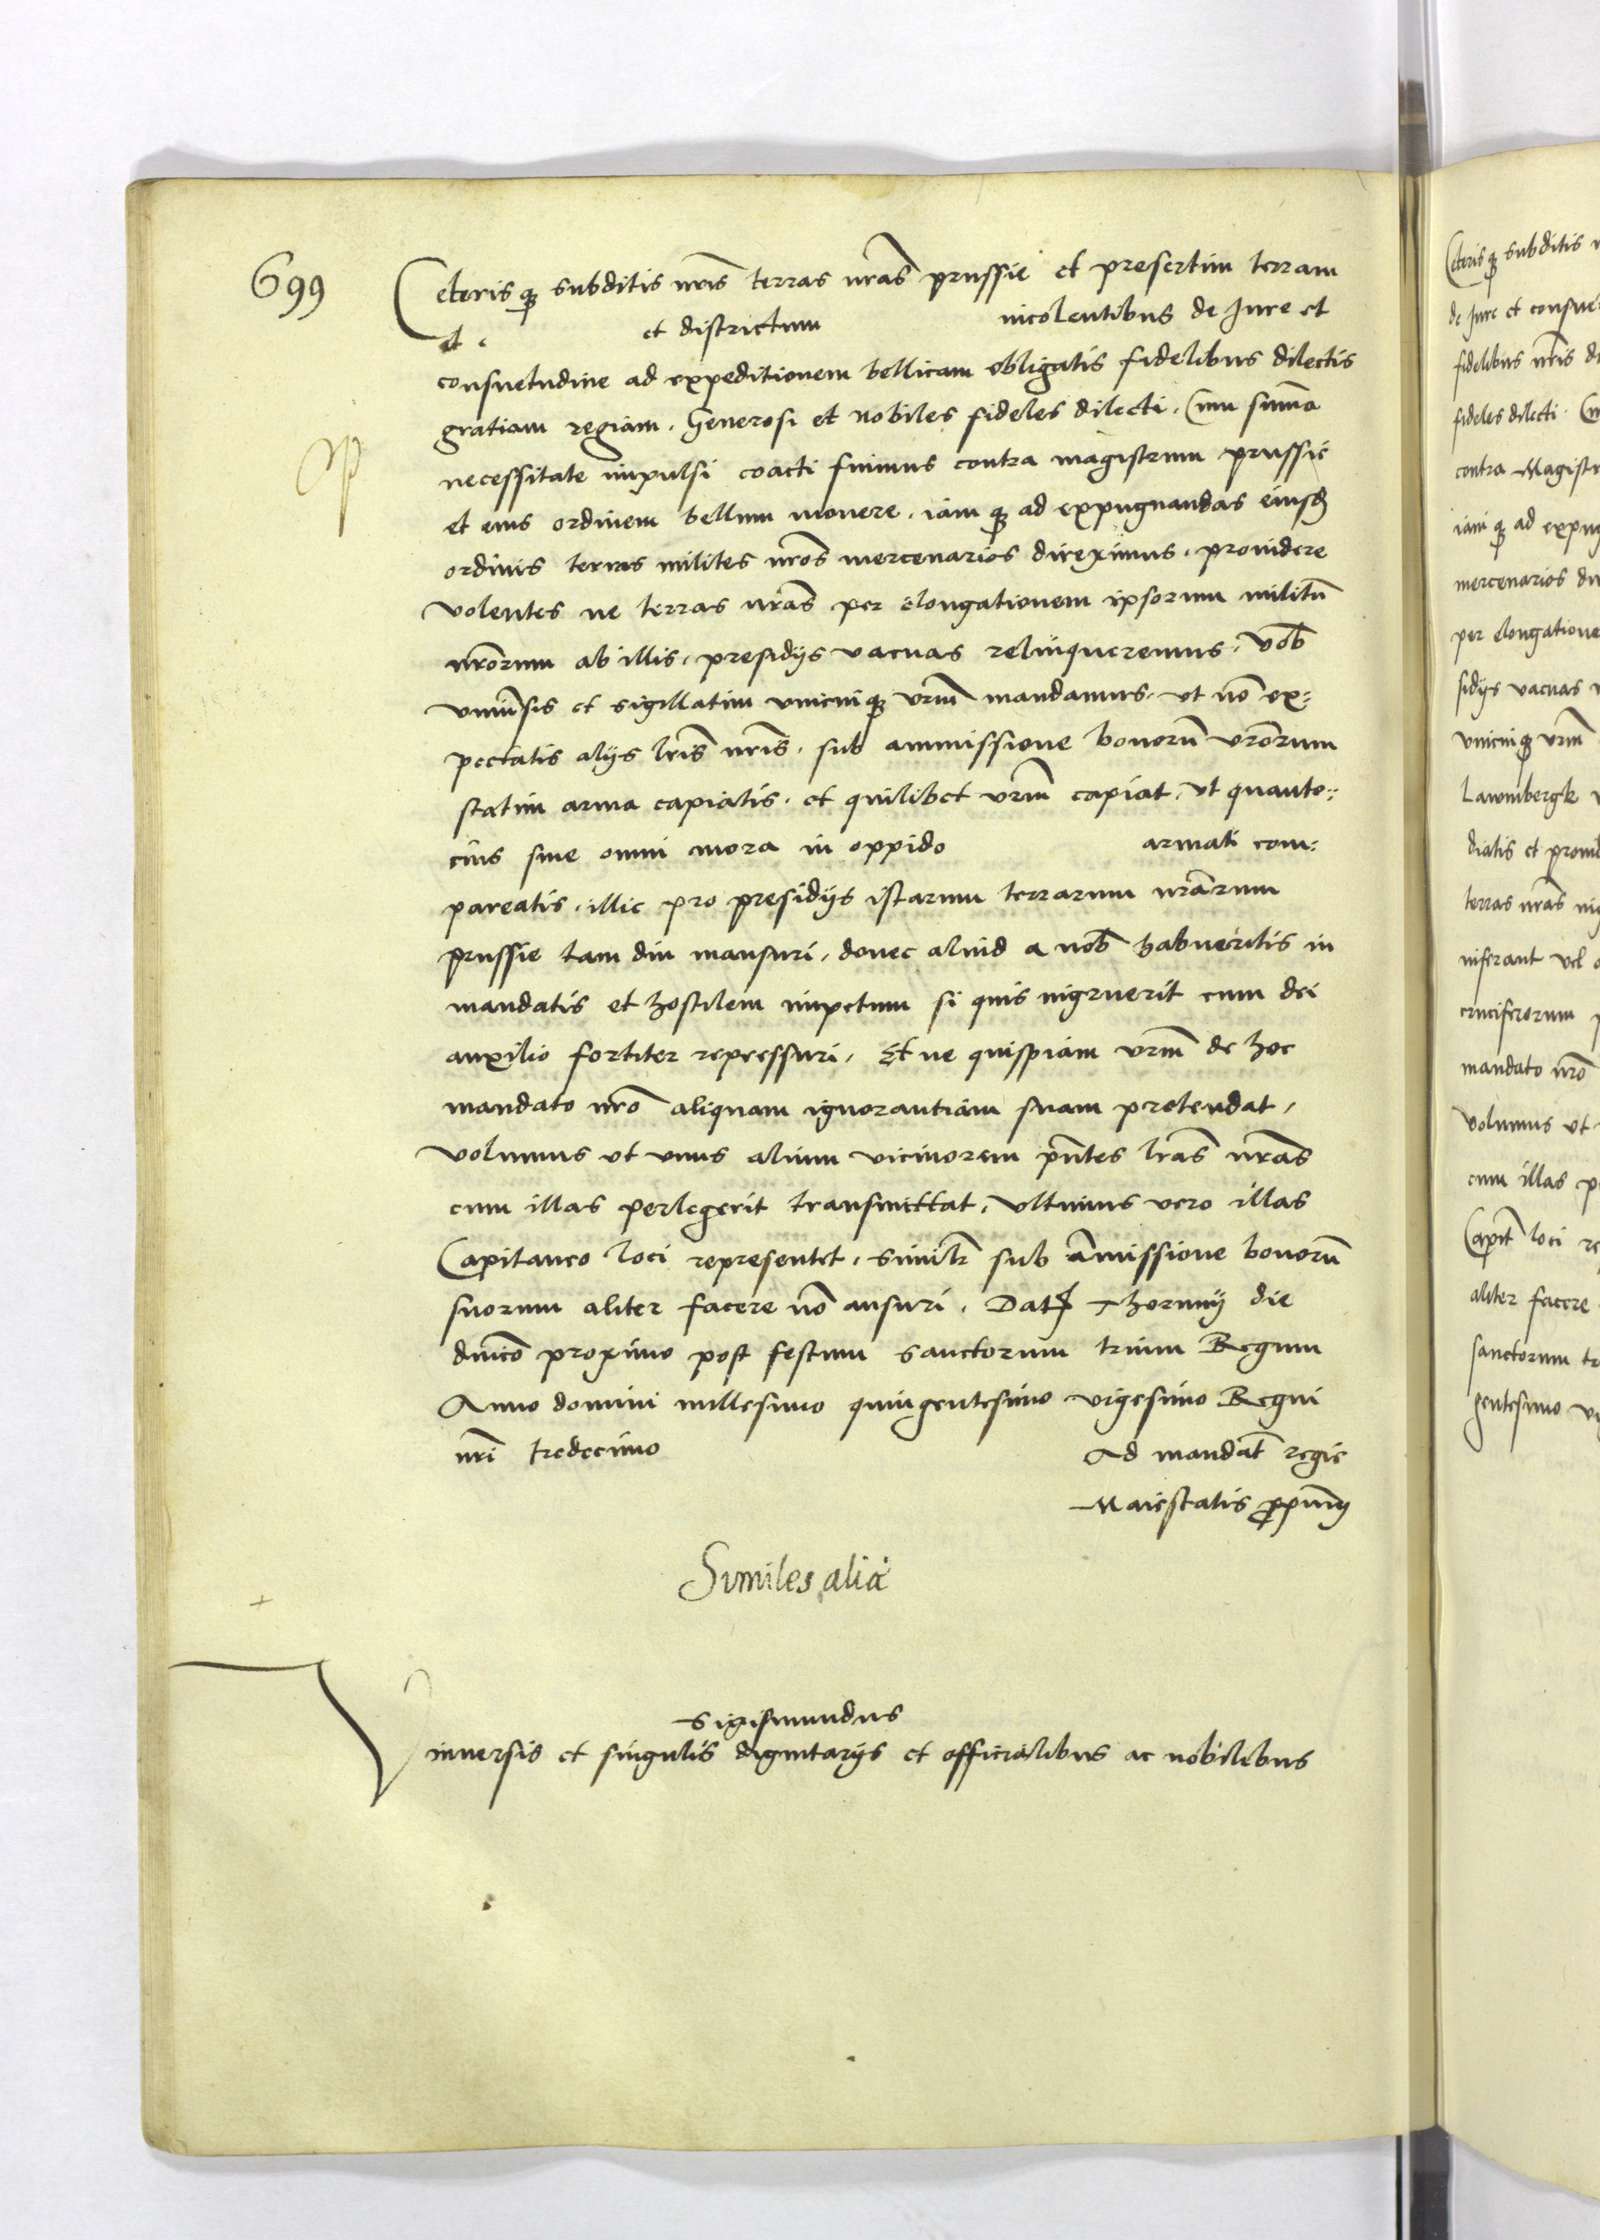 699
Ceteris q3 subditis nr̃is terras nr̃as prussie et presertim terram
et . et districtum incolentibus de Jure et
consuetudine ad expeditionem bellicam obligatis fidelibus dilectis
gratiam regiam . Generosi et nobiles fideles dilecti . Cum sum̃a
necessitate impulsi coacti fuimus contra magistrum prussie
et eius ordinem bellum mouere . iam q3 ad expugnandas eiusd
ordinis terras milites nr̃os mercenarios direximus . prouidere
volentes ne terras nr̃as per elongationem ipsorum militũ
nr̃orum ab illis . presidijs vacuas relinqueremus . vob̃
vniũsis et sigillatim vnicuiq3 vr̃m mandamus . vt nõ ex:
pectatis alijs lr̃is nr̃is . sub ammissione bonorũ vr̃orum
statim arma capiatis . et quilibet vr̃m capiat . vt quanto:
cius sine omni mora in oppido armati com:
pareatis . illic pro presidijs istarum terrarum nr̃arum
prussie tam diu mansuri . donec aliud a nob̃ habueritis in
mandatis et hostilem impetum si quis ingruerit cum dei
auxilio fortiter repressuri . Et ne quispiam vr̃m de hoc
mandato nr̃o aliquam ignorantiam suam pretendat .
volumus vt vnus alium viciniorem pñtes lr̃as nr̃as
cum illas perlegerit transmittat . vltimus vero illas
Capitaneo loci representet . similr̃ sub ãmissione bonorũ
suorum aliter facere nõ ausuri . Dat Thorunij die
dñico proximo post festum sanctorum trium Regum
Anno domini millesimo quingentesimo vigesimo Regni
nr̃i tredecimo Ad mandat̃ regie
Maiestatis ppriũ
Similes alie
Sigismundus
Vniuersis et singulis dignitarijs et officialibus ac nobilibus
Ceteris q3 subditis
de Jure et consue
fidelibus nr̃is di
fideles dilecti . Cu
contra Magistr
iam q3 ad expug
mercenarios di
per elongatione
sidijs vacuas
vnicuiq3 vr̃m
Lawmbergk
diatis et prouid
terras nr̃as
inferant vel
cruciferorum
mandato nr̃o
volumus vt
cum illas p
Capit̃ loci re
aliter facere
sanctorum tr
gentesimo vi